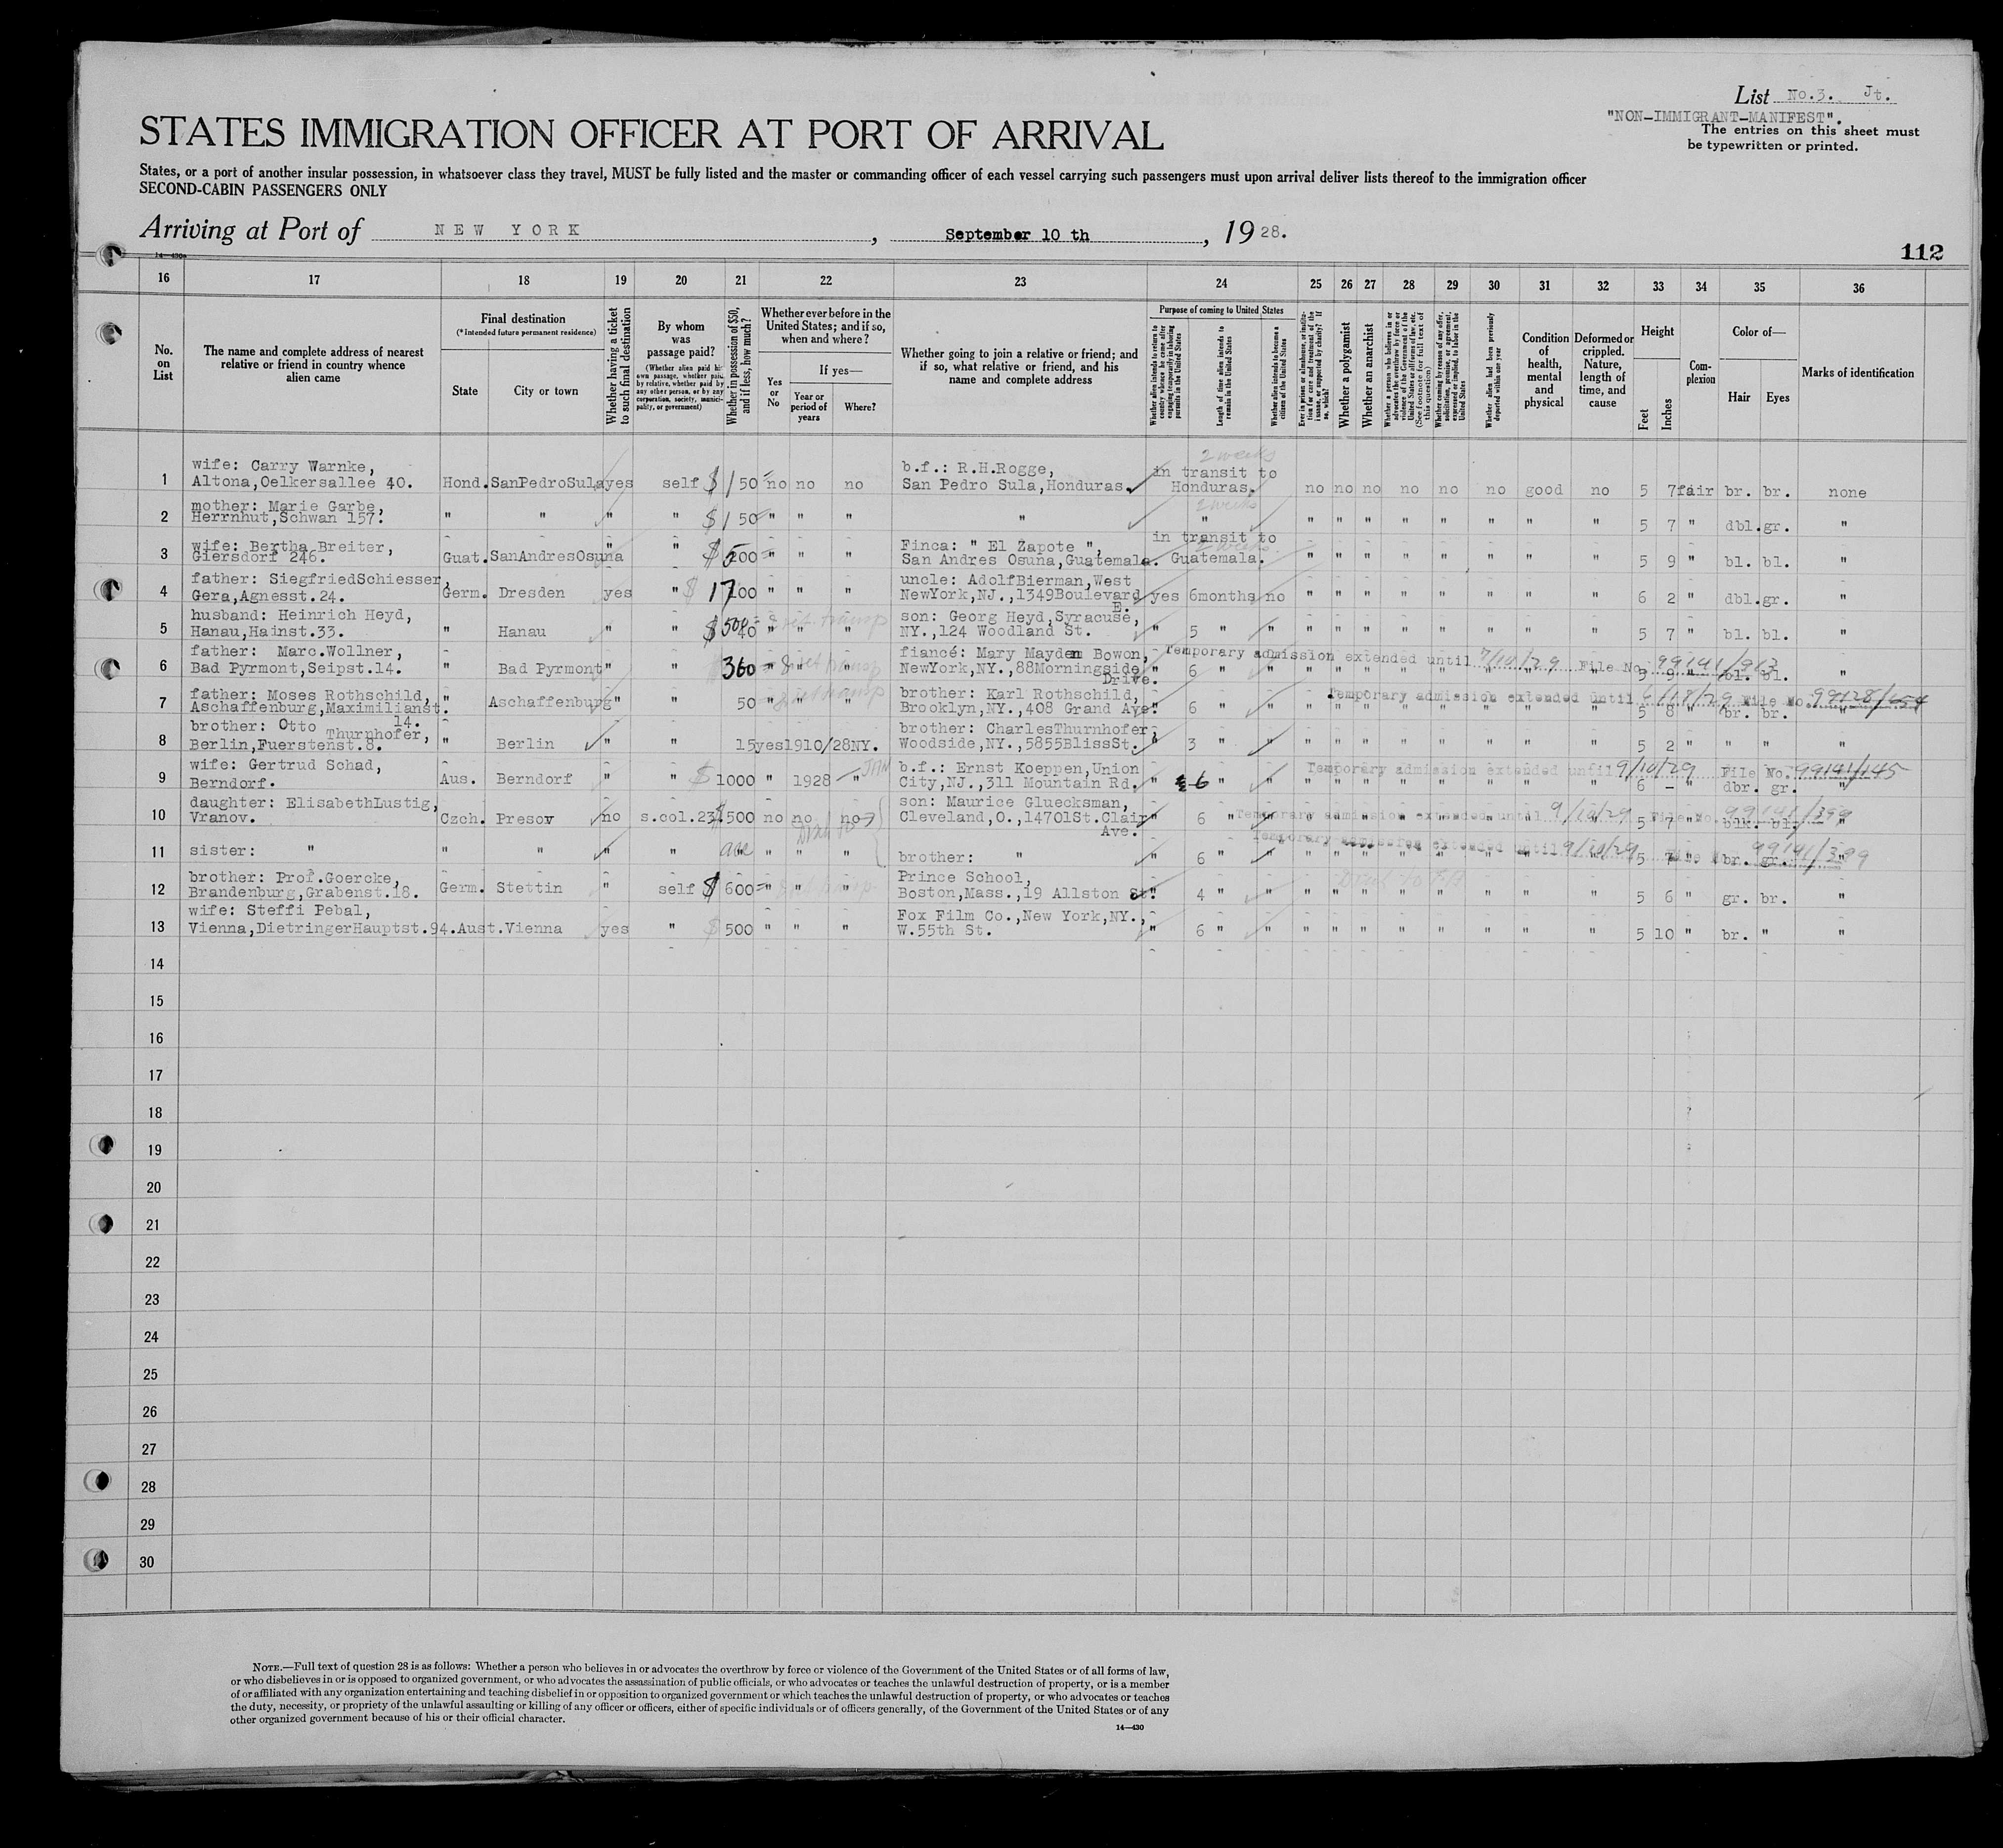 List No.3. Jt.
"NON-IMMIGRANT-MANIFEST".
The entries on this sheet must
be typewritten or printed.
STATES IMMIGRATION OFFICER AT PORT OF ARRIVAL
States, or a port of another insular possession, in whatsoever class they travel, MUST be fully listed and the master or commanding officer of each vessel carrying such passengers must upon arrival deliver lists thereof to the immigration officer
SECOND-CABIN PASSENGERS ONLY
Arriving at Port of NEW YORK, September 10 th, 1928.
112
14-430
16 17 18 19 20 21 22 23 24 25 26 27 28 29 30 31 32 33 34 35 36
No. on List
The name and complete address of nearest relative or friend in country whence alien came
Final destination
(*Intended future permanent residence)
State
City or town
Whether having a ticket to such final destination
By whom was passage paid?
(Whether alien paid his own passage, whether paid by relative, whether paid by any other person, or by any corporation, society, municipality, or government)
Whether in possession of $50, and if less, how much?
Whether ever before in the United States; and if so, when and where?
Yes or No
If yes—
Year or period of years
Where?
Whether going to join a relative or friend; and if so, what relative or friend, and his name and complete address
Purpose of coming to United States
Whether alien intends to return to country whence he came after engaging temporarily in laboring pursuits in the United States
Length of time alien intends to remain in the United States
Whether alien intends to become a citizen of the United States
Ever in prison or almshouse, or institution for care and treatment of the insane, or supported by charity? If so, which?
Whether a polygamist
Whether an anarchist
Whether a person who believes in or advocates the overthrow by force or violence of the Government of the United States or all forms of law, etc. (See footnote for full text of this question)
Whether coming by reason of any offer, solicitation, promise, or agreement, expressed or implied, to labor in the United States
Whether alien had been previously deported within one year
Condition of health, mental and physical
Deformed or crippled. Nature, length of time, and cause
Height
Feet
Inches
Complexion
Color of—
Hair
Eyes
Marks of identification
2 weeks
wife: Carry Warnke, b.f.: R.H.Rogge, in transit to
1 Altona,Oelkersallee 40. Hond. SanPedroSula yes self $ 150 no no no San Pedro Sula,Honduras. Honduras. no no no no no no good no 5 7 fair br. br. none
mother: Marie Garbe, 2 weeks
2 Herrnhut,Schwan 157. " " " " $ 150 " " " " " " " " " " " " " 5 7 " dbl. gr. "
wife: Bertha Breiter, Finca: " El Zapote ", in transit to
3 Giersdorf 246. Guat. SanAndresOsuna " " $ 500 " " " San Andres Osuna,Guatemala. Guatemala. 2 weeks " " " " " " " " 5 9 " bl. bl. "
father: SiegfriedSchiesser, uncle: AdolfBierman,West
4 Gera,Agnesst.24. Germ. Dresden yes " $ 1700 " " " NewYork,NJ.,1349Boulevard E. yes 6months no " " " " " " " " 6 2 " dbl. gr. "
husband: Heinrich Heyd, son: Georg Heyd,Syracuse,
5 Hanau,Hainst.33. " Hanau " " $ 500 40 " " " NY.,124 Woodland St. " 5 " " " " " " " " " " 5 7 " bl. bl. "
father: Marc.Wollner, fiancé: Mary Mayden Bowon, Temporary admission extended until 7/10/29 File No. 99191/913
6 Bad Pyrmont,Seipst.14. " Bad Pyrmont " " 360 " " " NewYork,NY.,88Morningside Drive. " 6 " " " " " " " " " " 5 9 " bl. bl. "
father: Moses Rothschild, brother: Karl Rothschild, Temporary admission extended until 6/18/29 File No. 99128/654
7 Aschaffenburg,Maximilianst. 14. " Aschaffenburg " " 50 " " " Brooklyn,NY.,408 Grand Ave. " 6 " " " " " " " " " " 5 8 " br. br. "
brother: Otto Thurnhofer, brother: CharlesThurnhofer,
8 Berlin,Fuerstenst.8. " Berlin " " 15 yes 1910/28 NY. Woodside,NY.,5855BlissSt. " 3 " " " " " " " " " " 5 2 " " " "
wife: Gertrud Schad, JAN b.f.: Ernst Koeppen,Union Temporary admission extended until 9/10/29 File No. 99141/145
9 Berndorf. Aus. Berndorf " " $ 1000 " 1928 " City,NJ.,311 Mountain Rd. " 6 " " " " " " " " " " 6 - " dbr. gr. "
daughter: ElisabethLustig, son: Maurice Gluecksman, Temporary admission extended until 9/10/29 File No. 99141/399
10 Vranov. Czch. Presov no s.col.23 $ 500 no no no Cleveland,O.,14701St.Clair Ave. " 6 " " " " " " " " " " 5 7 " blk. bl. "
Temporary admission extended until 9/10/29 File No. 99141/399
11 sister: " " " " " " " " brother: " " 6 " " " " " " " " " " 5 " br. gr. "
brother: Prof.Goercke, Prince School,
12 Brandenburg,Grabenst.18. Germ. Stettin " self $ 600 " " " Boston,Mass.,19 Allston St. " 4 " " " " " " " " " " 5 6 " gr. br. "
wife: Steffi Pebal, Fox Film Co.,New York,NY.,
13 Vienna,DietringerHauptst.94. Aust. Vienna yes " $ 500 " " " W.55th St. " 6 " " " " " " " " " " 5 10 " br. " "
14
15
16
17
18
19
20
21
22
23
24
25
26
27
28
29
30
NOTE.—Full text of question 28 is as follows: Whether a person who believes in or advocates the overthrow by force or violence of the Government of the United States or of all forms of law,
or who disbelieves in or is opposed to organized government, or who advocates the assassination of public officials, or who advocates or teaches the unlawful destruction of property, or is a member
of or affiliated with any organization entertaining and teaching disbelief in or opposition to organized government or which teaches the unlawful destruction of property, or who advocates or teaches
the duty, necessity, or propriety of the unlawful assaulting or killing of any officer or officers, either of specific individuals or of officers generally, of the Government of the United States or of any
other organized government because of his or their official character.
14-430